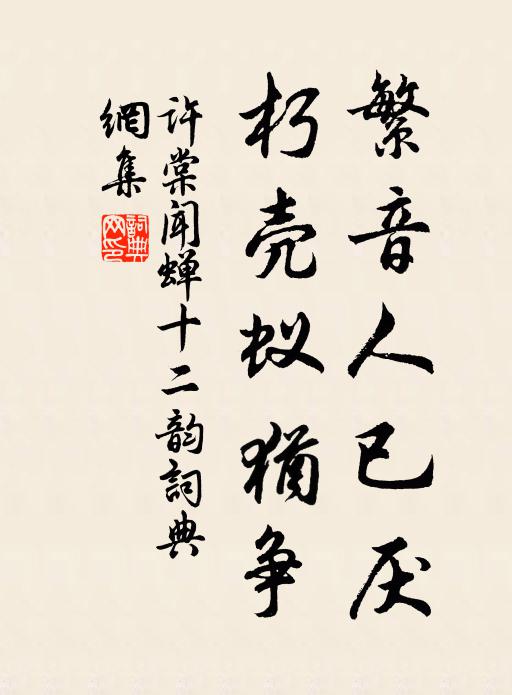 繁音人已厌
朽壳蚁猶争
许棠闻蝉十二韵詞典
網集
詞典
网印